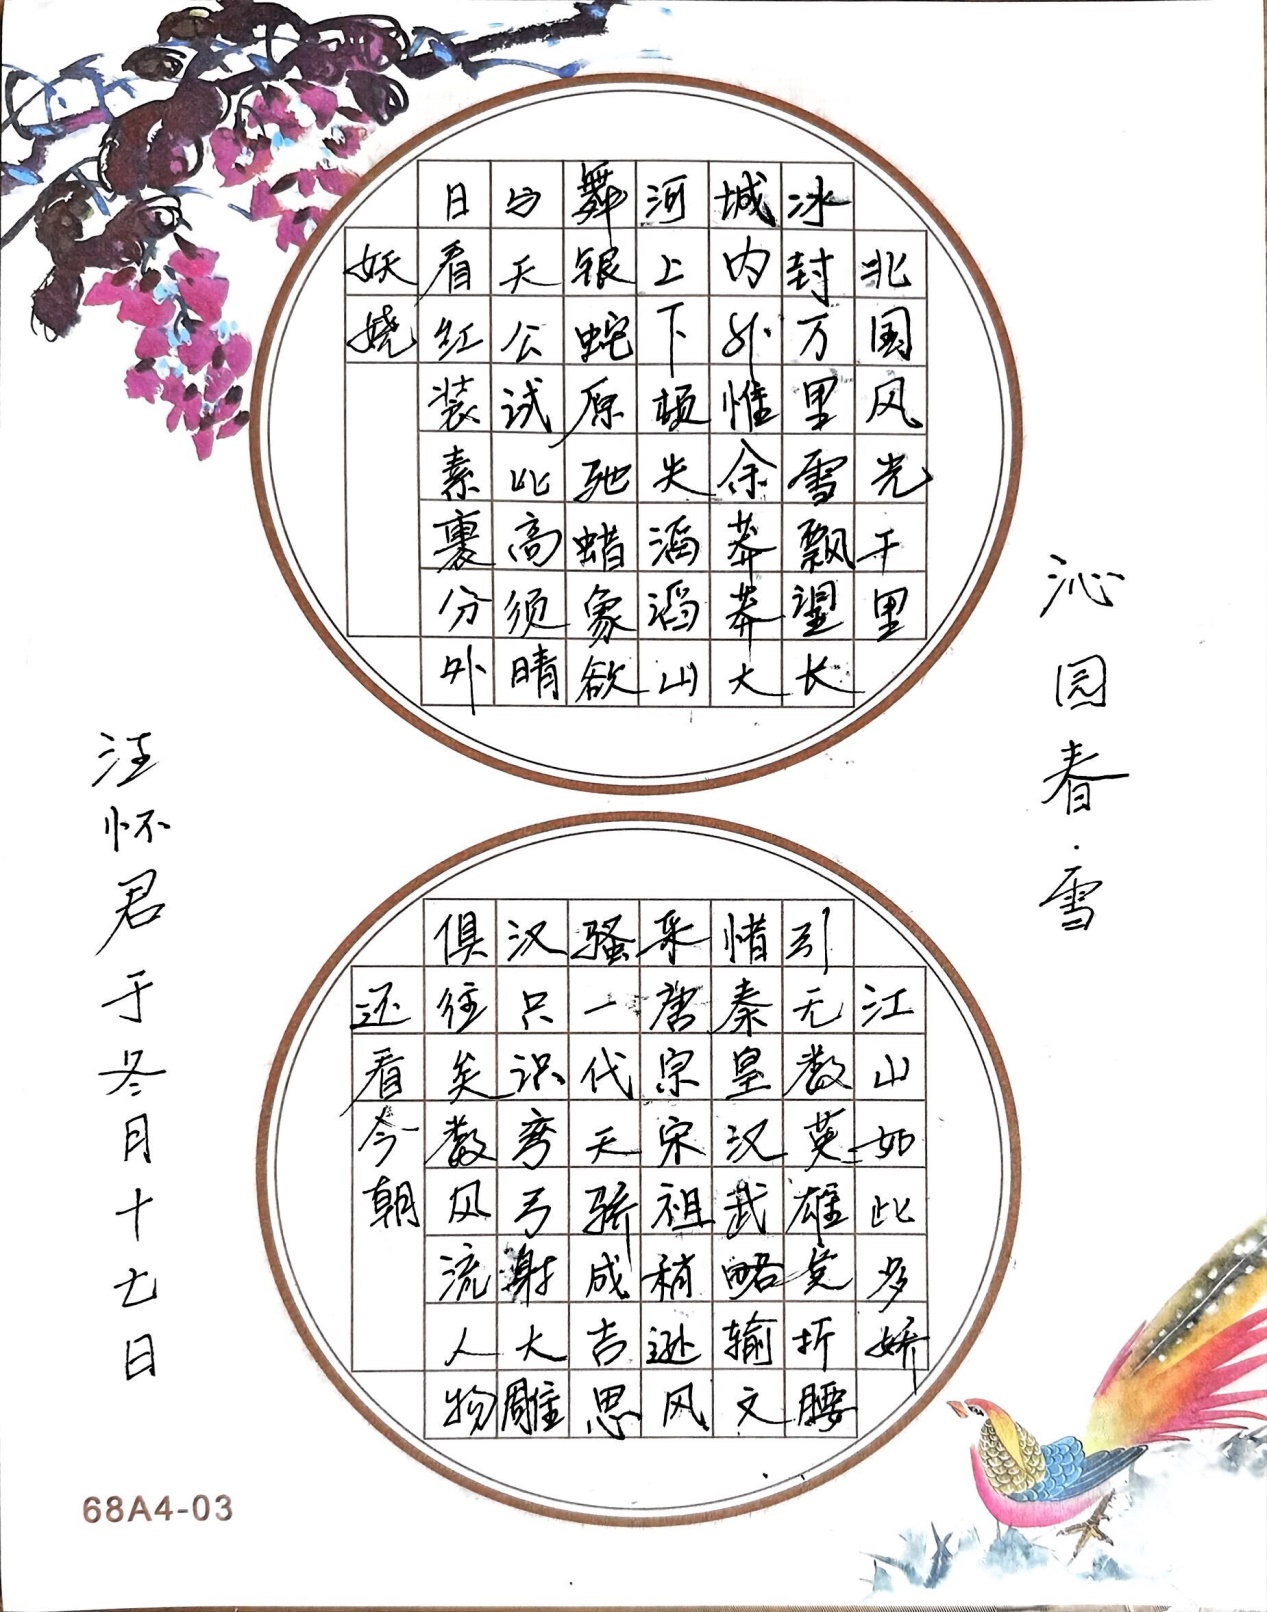 沁园春·雪
北国风光千里
冰封万里雪飘望长
城内外惟余莽莽大
河上下顿失滔滔山
舞银蛇原驰蜡象欲
与天公试比高须晴
日看红装素裹分外
妖娆
江山如此多娇
引无数英雄竞折腰
惜秦皇汉武略输文
采唐宗宋祖稍逊风
骚一代天骄成吉思
汉只识弯弓射大雕
俱往矣数风流人物
还看今朝
汪怀君于冬月十七日
68A4-03